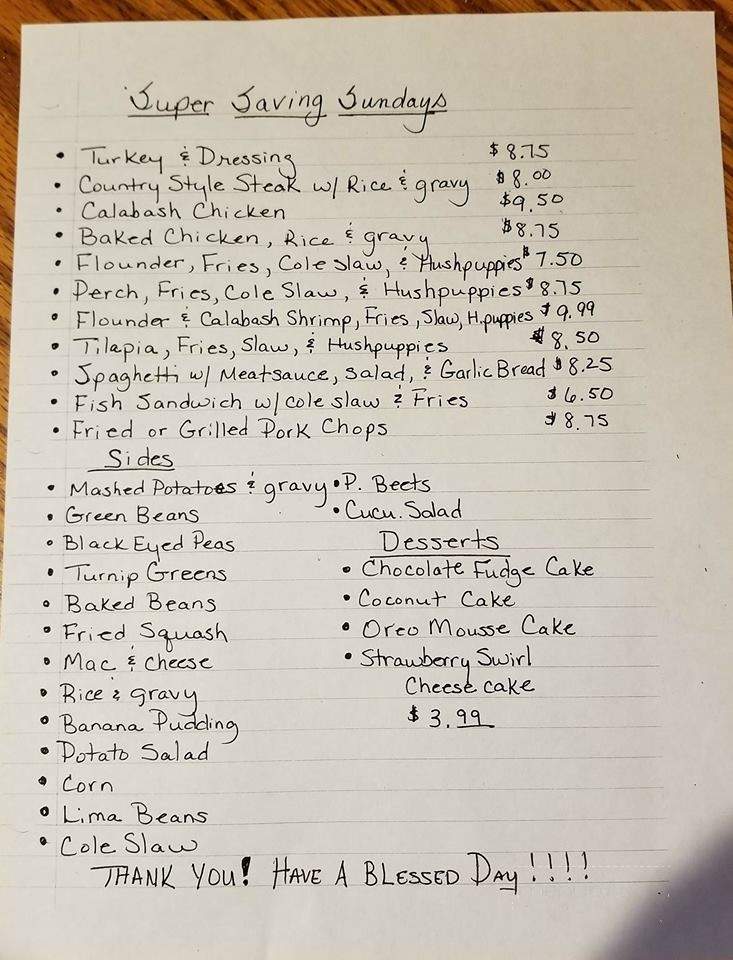 Super Saving Sundays
• Turkey & Dressing $8.75
• Country Style Steak w/ Rice & gravy $8.00
• Calabash Chicken $9.50
• Baked Chicken, Rice & gravy $8.75
• Flounder, Fries, Cole slaw, & Hushpuppies $7.50
• Perch, Fries, Cole Slaw, & Hushpuppies $8.75
• Flounder & Calabash Shrimp, Fries, Slaw, H.puppies $9.99
• Tilapia, Fries, Slaw, & Hushpuppies $8.50
• Spaghetti w/ Meatsauce, salad, & Garlic Bread $8.25
• Fish Sandwich w/ cole slaw & Fries $6.50
• Fried or Grilled Pork Chops $8.75
Sides
• Mashed Potatoes & gravy
• Green Beans
• Black Eyed Peas
• Turnip Greens
• Baked Beans
• Fried Squash
• Mac & cheese
• Rice & gravy
• Banana Pudding
• Potato Salad
• Corn
• Lima Beans
• Cole Slaw
• P. Beets
• Cucu. Salad
Desserts
• Chocolate Fudge Cake
• Coconut Cake
• Oreo Mousse Cake
• Strawberry Swirl
Cheese cake
$3.99
THANK YOU! HAVE A BLESSED DAY!!!!